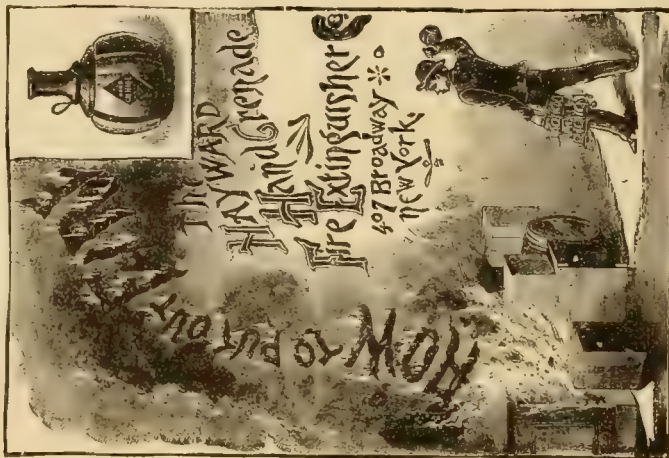 HOW
TO PUT OUT
FIRE
The
HAYWARD
Hand Grenade
Fire Extinguisher
407 Broadway
New York.